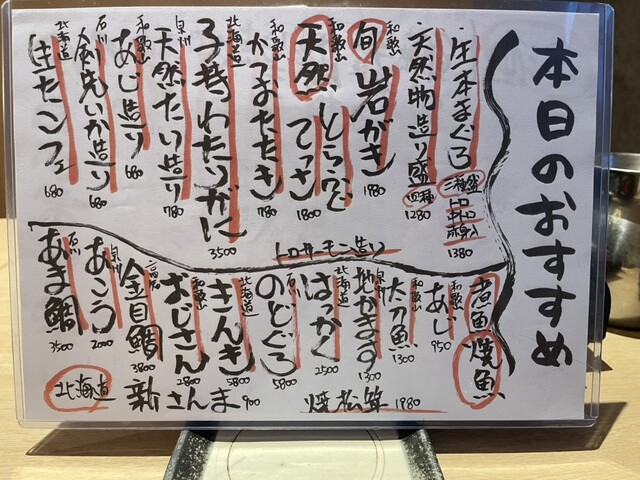 本日のおすすめ
生本まぐろ 二種盛 トロ 中トロ 赤身入 1380
天然物造り盛 四種 1280
和歌山 旬 岩がき 1980
和歌山 天然とらふぐてっさ 1800
和歌山 かつおたたき 780
北海道 子持わたりがに 3500
泉州 天然たい造り 780
和歌山 あじ造り 680
石川 剣先いか造り 680
北海道 生センフェ 680
トロサーモン造り
煮魚 焼魚
和歌山 あじ 950
和歌山 太刀魚 1300
泉州 地かます 1300
北海道 はっかく 2500
石川 のどぐろ 5800
北海道 きんき 5800
和歌山 おじさん 2800
高知 金目鯛 3800
泉州 あこう 2000
石川 あま鯛 3500
北海道 新さんま 900
焼松茸 1980